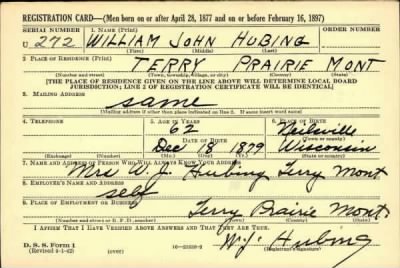 REGISTRATION CARD—(Men born on or after April 28, 1877 and on or before February 16, 1897)
SERIAL NUMBER 1. NAME (Print) ORDER NUMBER
U 272 WILLIAM JOHN HUBING
(First) (Middle) (Last)
2. PLACE OF RESIDENCE (Print)
TERRY PRAIRIE MONT
(Number and street) (Town, township, village, or city) (County) (State)
[THE PLACE OF RESIDENCE GIVEN ON THE LINE ABOVE WILL DETERMINE LOCAL BOARD
JURISDICTION; LINE 2 OF REGISTRATION CERTIFICATE WILL BE IDENTICAL]
3. MAILING ADDRESS
same
[Mailing address if other than place indicated on line 2. If same insert word same]
4. TELEPHONE 5. AGE IN YEARS 6. PLACE OF BIRTH
62 Neilsville
DATE OF BIRTH (Town or county)
Dec 18 1879 Wisconsin
(Exchange) (Number) (Mo.) (Day) (Yr.) (State or country)
7. NAME AND ADDRESS OF PERSON WHO WILL ALWAYS KNOW YOUR ADDRESS
Mrs W. J. Hubing Terry Mont
8. EMPLOYER'S NAME AND ADDRESS
self
9. PLACE OF EMPLOYMENT OR BUSINESS
Terry Prairie Mont.
(Number and street or R. F. D. number) (Town) (County) (State)
I AFFIRM THAT I HAVE VERIFIED ABOVE ANSWERS AND THAT THEY ARE TRUE.
D. S. S. Form 1
(Revised 4-1-42) (over) 16—21630-2 W. J. Hubing